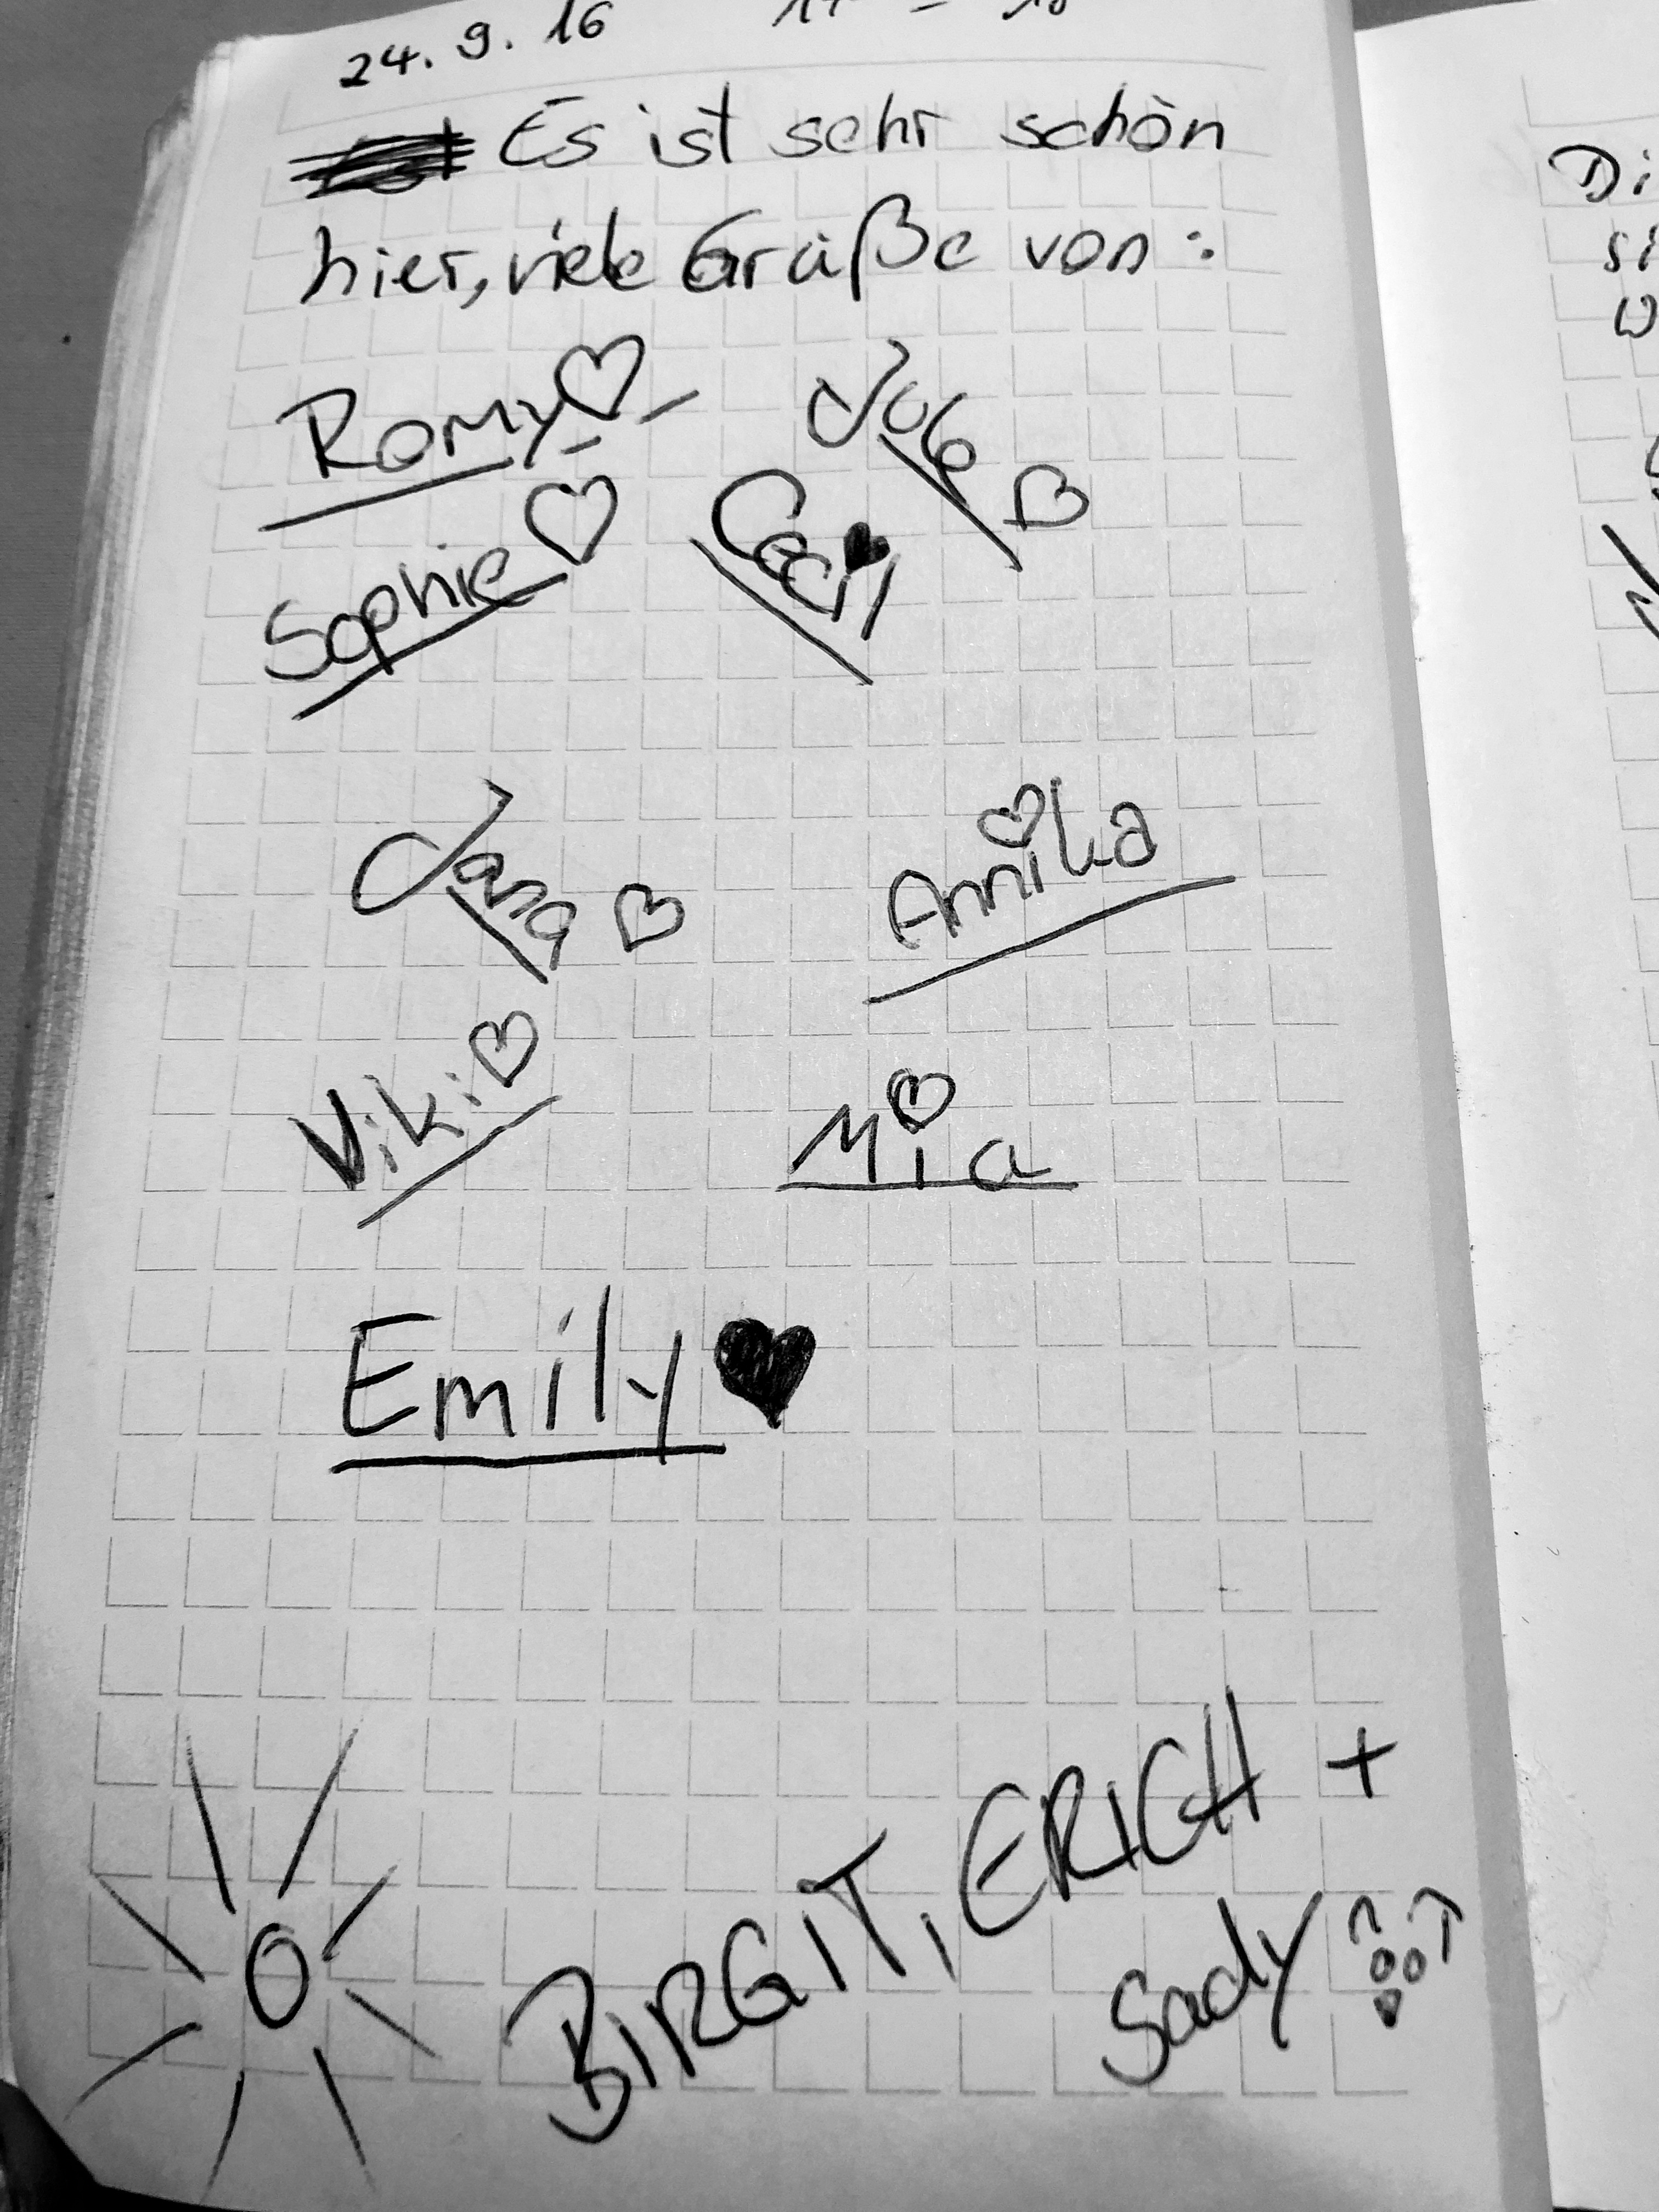 24. 9. 16
Es ist sehr schön
hier, viele Grüße von:
Romy
Jule
Sophie
Cecil
Jana
Annika
Viki
Mia
Emily
BIRGIT, ERICH +
Sady
Di